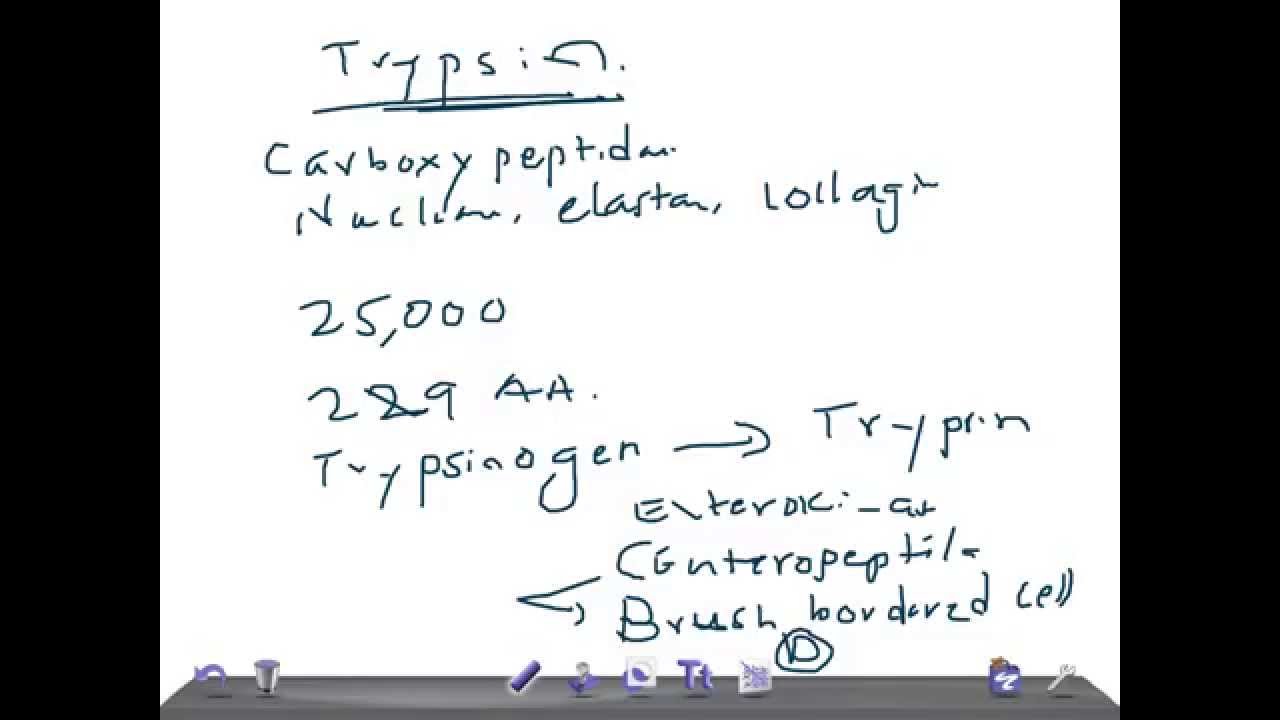 Trypsin.
Carboxypeptidase
Nuclease, elastase, collagen
25,000
229 AA.
Trypsinogen → Trypsin
Enterokinase
(Enteropeptida
Brush bordered cell
D
Tt